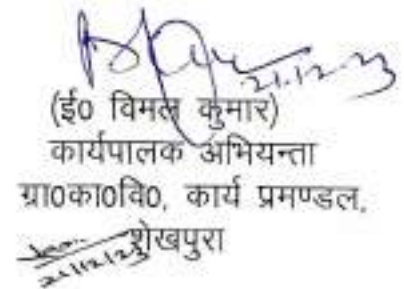 21.12.23
(ई० विमल कुमार)
कार्यपालक अभियन्ता
ग्रा०का०वि०, कार्य प्रमण्डल,
शेखपुरा
21/12/23